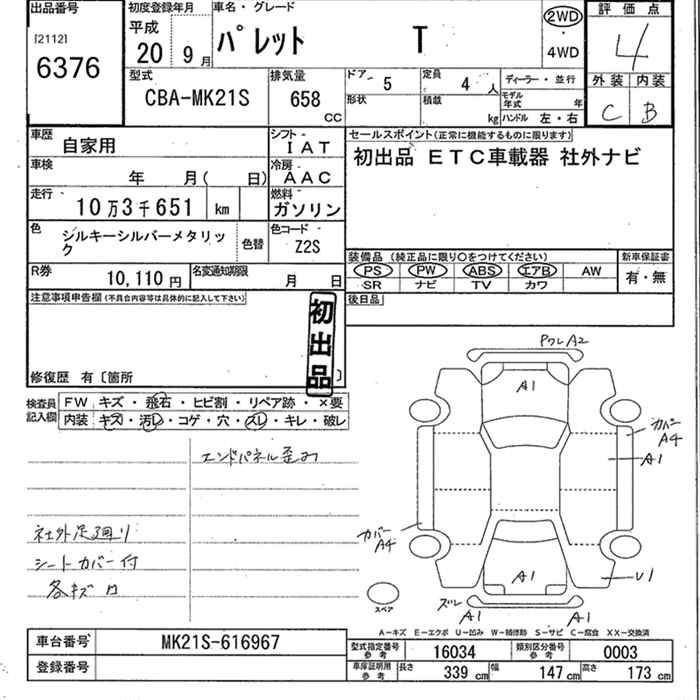 出品番号 初度登録年月 車名・グレード 評価点
[2112] 平成 2WD
6376 20 9月 パレット T ・ 4
4WD
型式 排気量 ドア 5 定員 4人 ディーラー・並行 外装 内装
CBA-MK21S 658 CC 形状 積載 kg モデル年式 年 C B
ハンドル 左・右
車歴 自家用 シフト IAT セールスポイント(正常に機能するものに限ります)
車検 年 月( 日) 冷房 AAC 初出品 ETC車載器 社外ナビ
走行 10万3千651 km 燃料 ガソリン
色 シルキーシルバーメタリック 色替 色コード Z2S
装備品 (純正品に限り〇をつけてください) 新車保証書
R券 10,110円 名変通知期限 月 日 PS PW ABS エアB AW 有・無
SR ナビ TV カワ
注意事項申告欄(不具合内容等は具体的に記入して下さい) 後日品
初出品
修復歴 有〔箇所 〕
検査員記入欄 FW キズ・飛石・ヒビ割・リペア跡・×要
内装 キズ・汚レ・コゲ・穴・スレ・キレ・破レ
エンドパネル歪み
社外足廻り
シートカバー付
各キズ
PワレA2
A1
カバー
A4
A1
カバー
A4
A1
U1
スペア
ズレ
A1 A1
A-キズ E-エクボ U-凹み W-補修跡 S-サビ C-腐食 XX-交換済
車台番号 MK21S-616967 型式指定番号 参考 16034 類別区分番号 参考 0003
登録番号 車庫証明用 参考 長さ 339 cm 幅 147 cm 高さ 173 cm